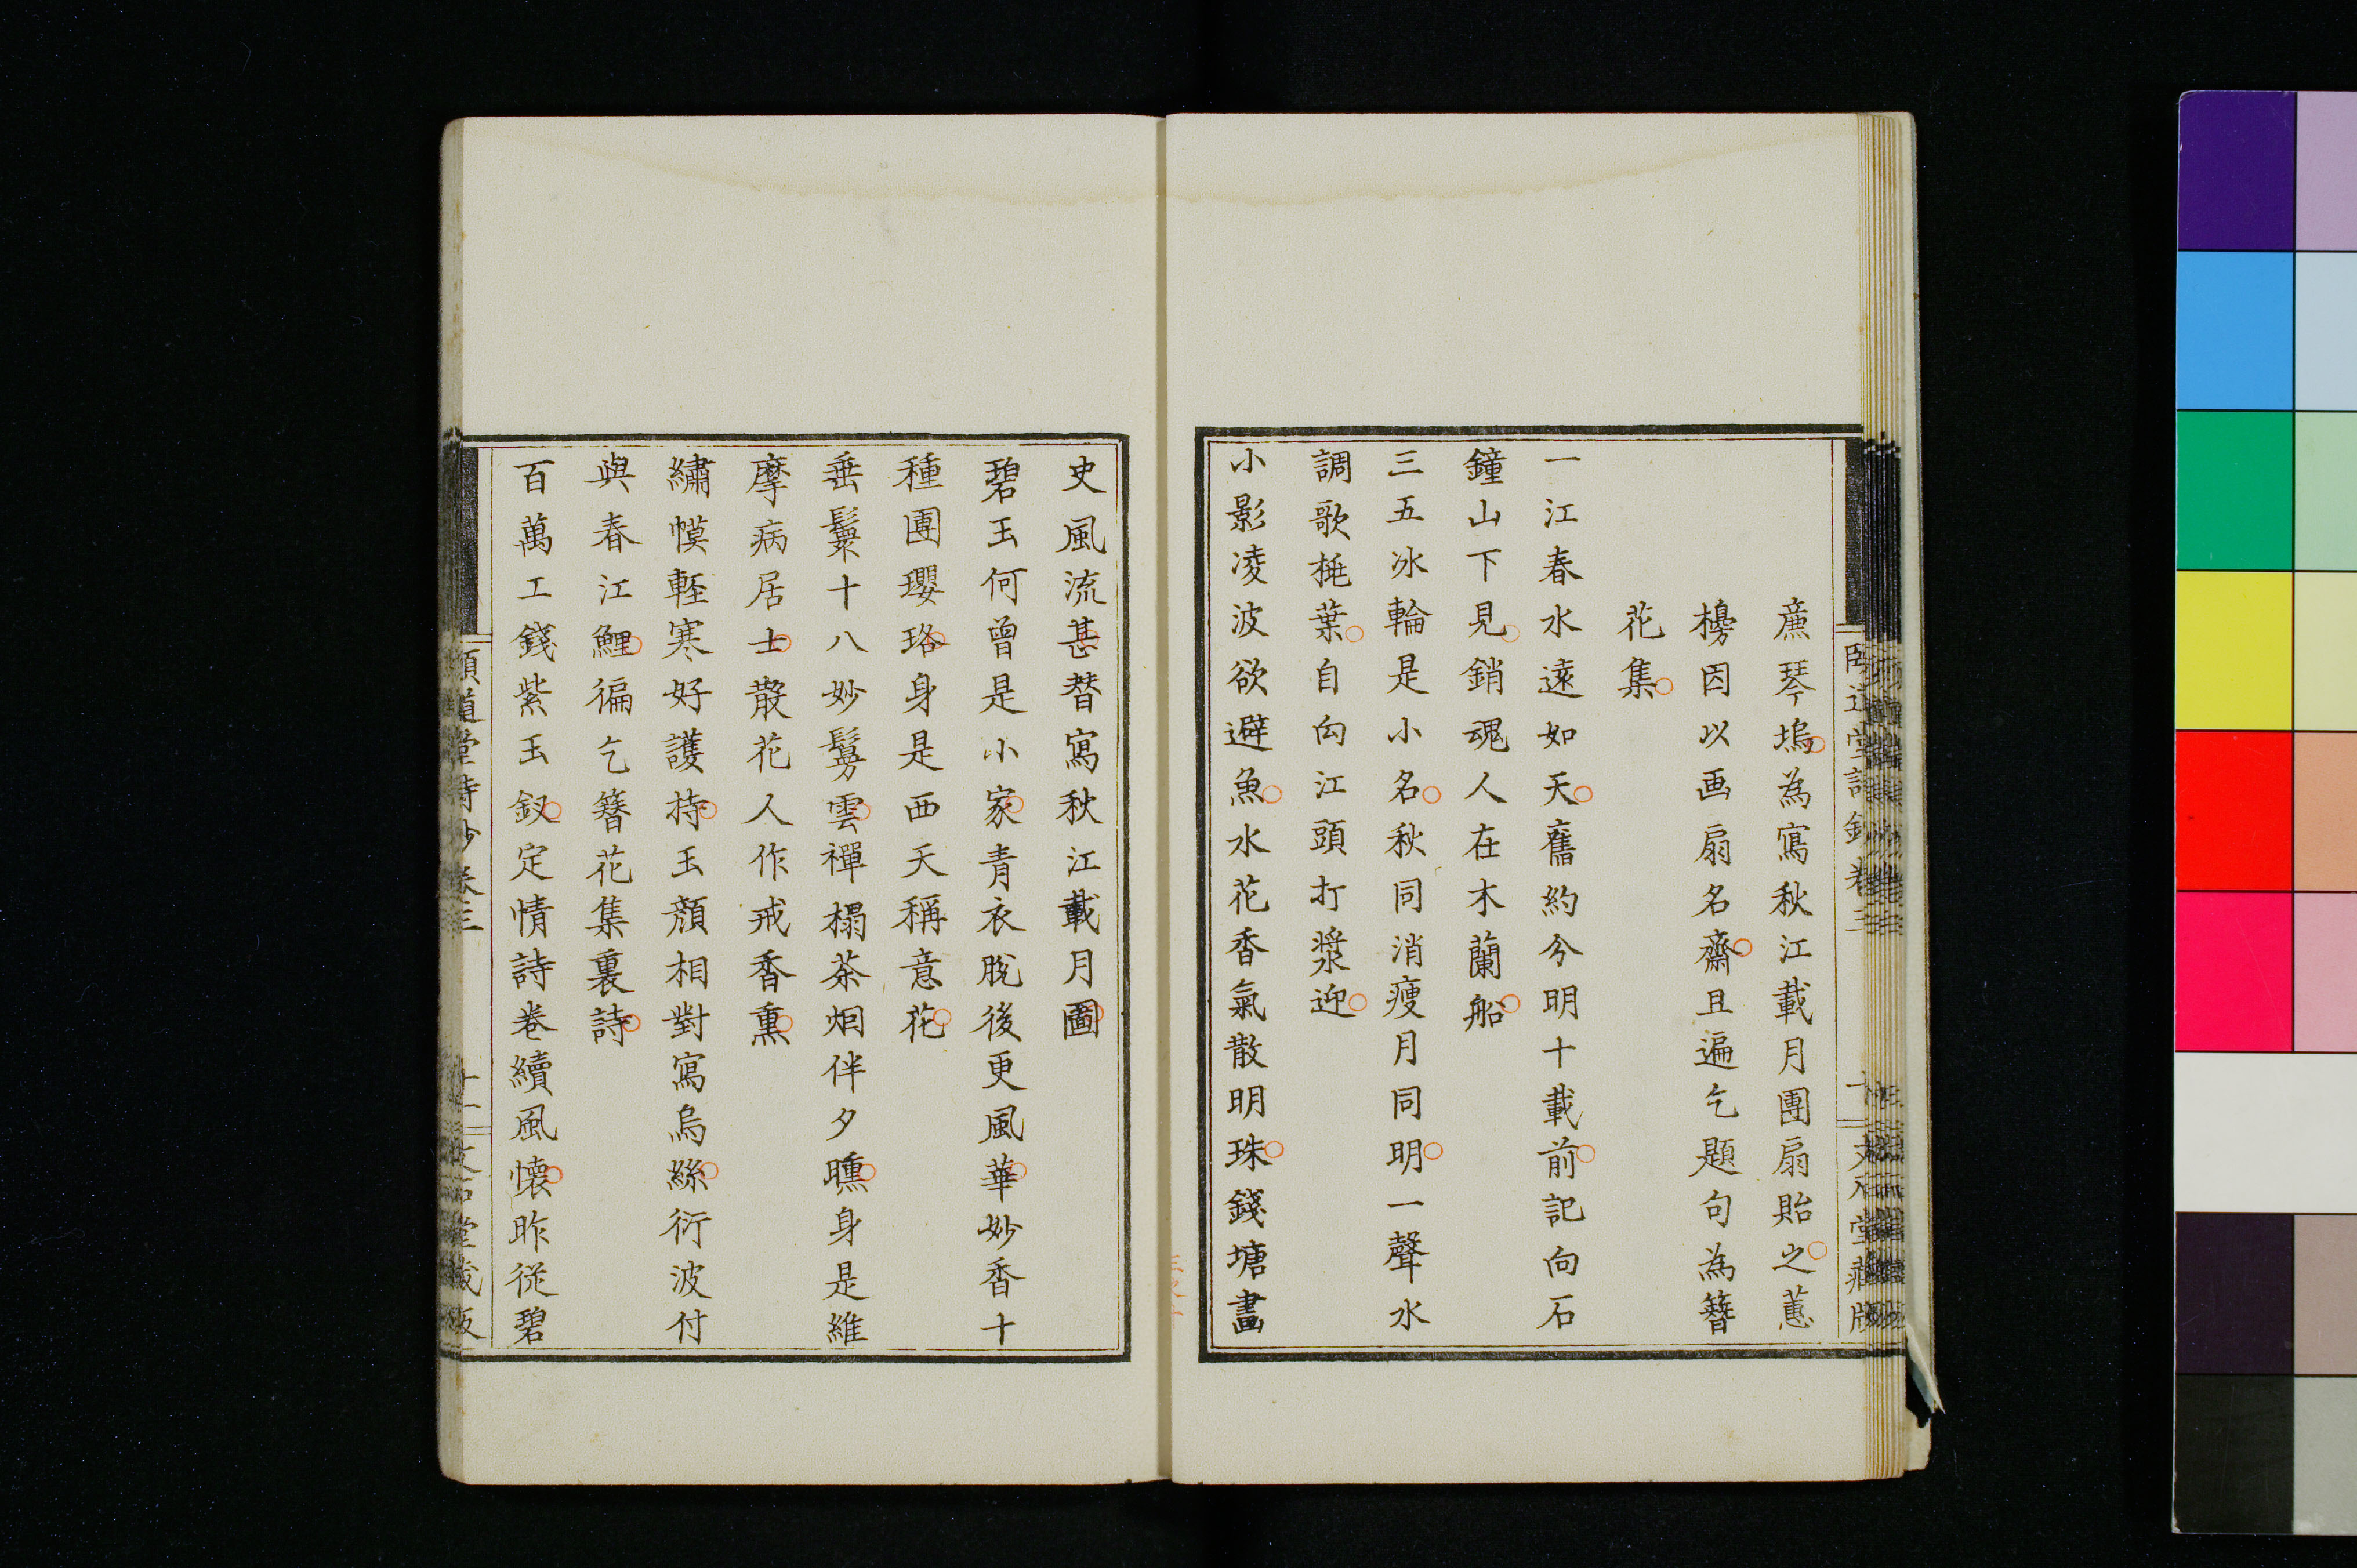 廉琴塢為寫秋江載月團扇貽之蕙
櫋因以画扇名齋且遍乞題句為簪
花集
一江春水遠如天舊約分明十載前記向石
鐘山下見銷魂人在木蘭船
三五冰輪是小名秋同消瘦月同明一聲水
調歌桃葉自向江頭打槳迎
小影凌波欲避魚水花香氣散明珠錢塘畫
史風流甚替寫秋江載月圖
碧玉何曾是小家青衣脫後更風華妙香十
種團瓔珞身是西天稱意花
垂鬟十八妙鬘雲禪榻茶烟伴夕曛身是維
摩病居士散花人作戒香熏
繡幙輕寒好護持玉顏相對寫烏絲衍波付
與春江鯉徧乞簪花集裏詩
百萬工錢紫玉釵定情詩卷續風懷昨從碧
頤道堂詩鈔卷三
十一